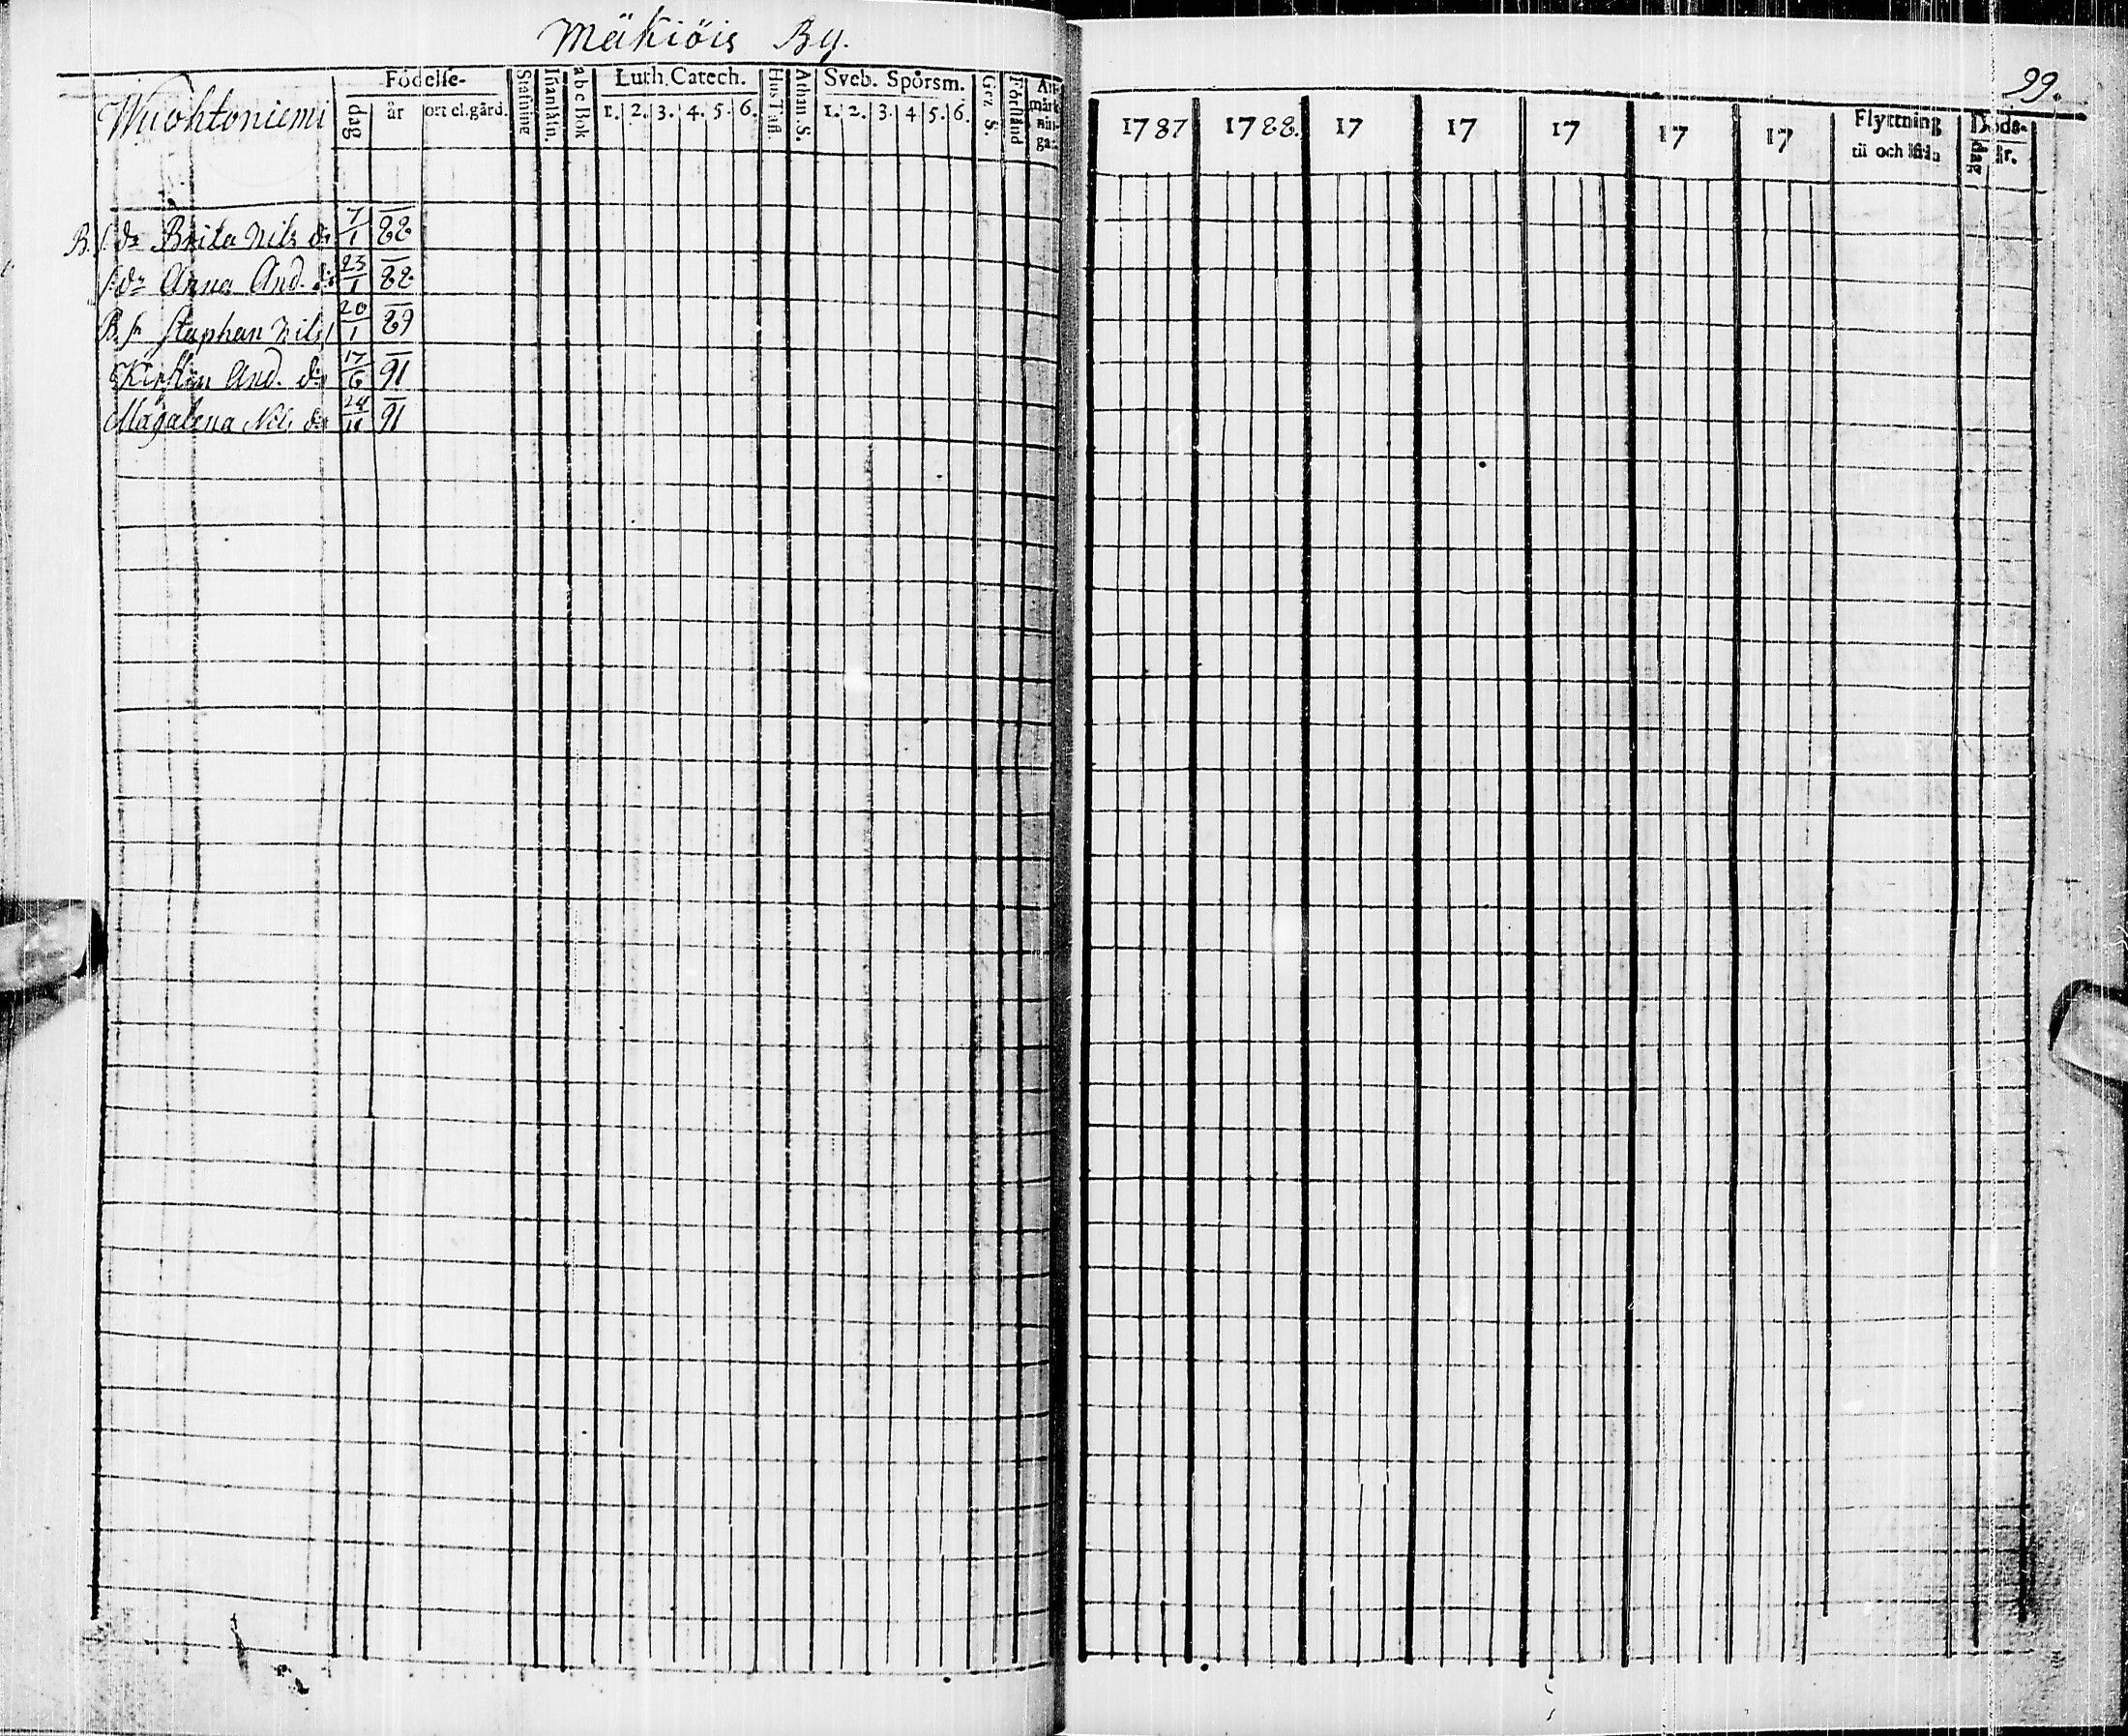 Mäkiöis By.
Wuohtoniemi
Födelse-
dag år ort el. gård.
Stafning
Innanläsn.
abc Bok
Luth. Catech.
1. 2. 3. 4. 5. 6.
Hus Tafl.
Athan. S.
Sveb. Spörsm.
1. 2. 3. 4 5. 6.
Gez. S.
Förstånd
An-
märk-
nin-
gar.
B. s. dr Brita Nils dr 7/1 88
s. dr Anna And. dr 23/1 88
B. sn Staphan Nils 20/1 89
Kirstin And. dr 17/6 91
Magalena Nils dr 24/11 91
99.
1787 1788. 17 17 17 17 17
Flyttning
til och ifrån
Döds-
dag år.